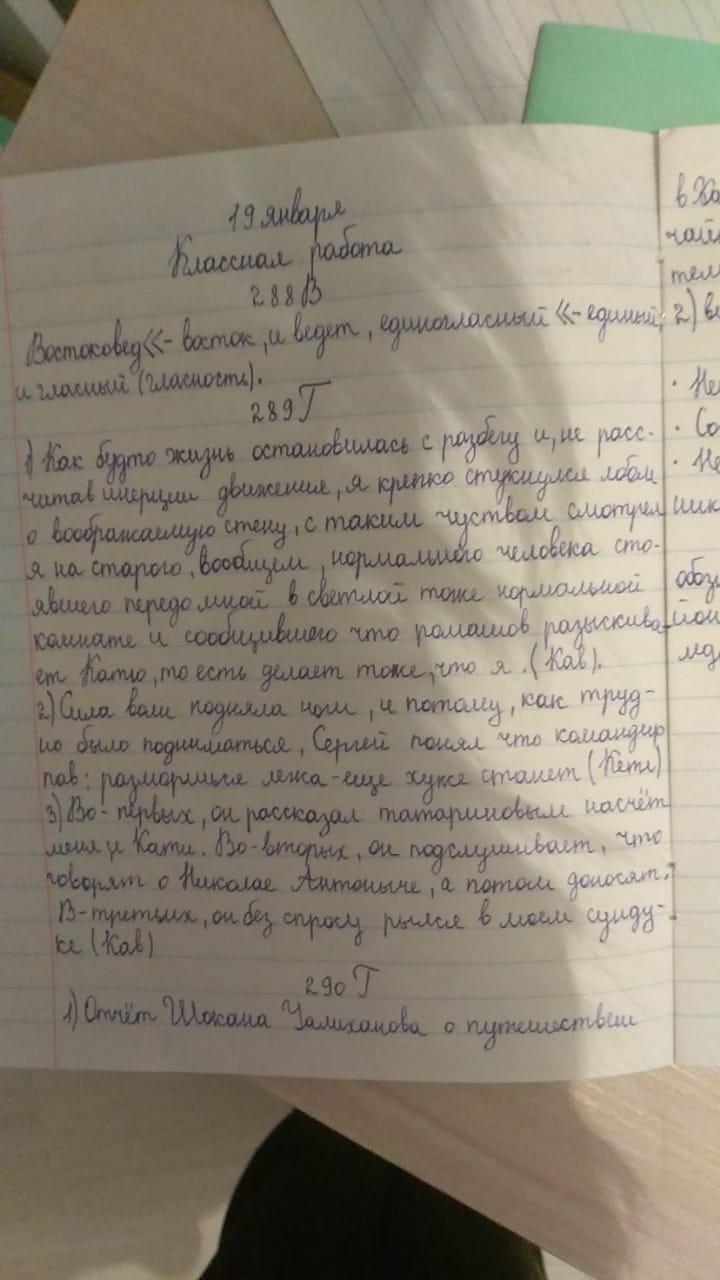 19 января
Классная работа
288В
Востоковед<<- восток, и ведет, единогласный <<- единый,
и гласный (гласность).
289Г
1) Как будто жизнь остановилась с разбегу и, не расс-
читав инерции движения, я крепко стукнулся лбом
о воображаемую стену, с таким чуством смотрел
я на старого, вообщем, нормального человека сто-
явшего передо мной в светлой тоже нормальной
комнате и сообщившего что ромашов разыскива-
ет Катю, то есть делает тоже, что я. (Кав).
2) Сила воли подняла ноги, и потому, как труд-
но было подниматься, Сергей понял что командир
пав: разморишься лежа - еще хуже станет (Кетл)
3) Во-первых, он рассказал татариновым насчёт
меня и Кати. Во-вторых, он подслушивает, что
говорят о Николае Антоныче, а потом доносят.
В-третьих, он без спросу рылся в моем сунду-
ке (Кав)
290Г
1) Отчёт Шокана Уалиханова о путешествии
в
чай
тел
2)
· Не
· Со
· Не
ник
обоз